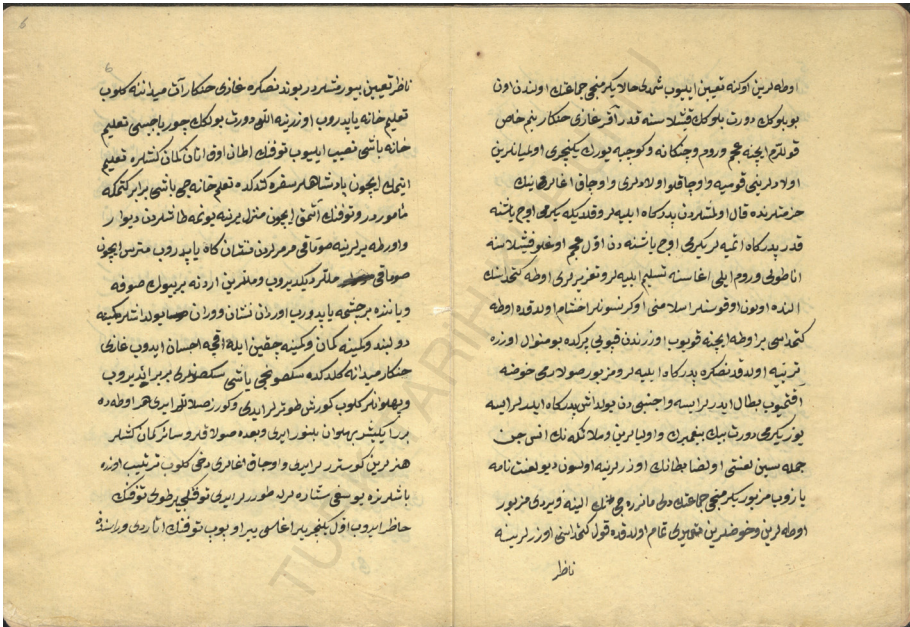 اوطه لرین اوکنه تعیین ایلیوب شمدی حالا یکرمنجی جماعتك اولندن اون
بو بلوکك دورت بلوكك قشلاسنه قدر آقر غازی خنكار بنم خاص
قوللرم ایچنه عجم وروم و چنکانه وکوجبه یورك یکیچری اولمیانلرین
اولادلرینی قومیه واوجاقلو اولادلری واوجاق اغالری نیك
خزمتلرنده قال اولمشلردن بدركاه ایلیه لر وقلدیکه یکرمی اوچ یاشنه
قدر بدركاه اتمیه لر یکرمی اوچ یاشنه دن اوّل عجم اوغلو قشلاسنه
اناطولی وروم ایلی اغاسنه تسلیم ایلیه لر وتعزیرلری اوطه كتخداسنك
النده اولون اوقوسنلر اسلامنی اوکرنسونلر اختشام اولدقده اوطه
كتخداسی بر اوطه ایچنه قویوب اوزرندن قپویی برکده بو منوال اوزره
تربیه اولدقدنصکره بدركاه ایلیه لر ومزبور صولارمی حوضه
اقتمیوب بطال ایدرلر ایسه واجنبی دن یولداش بدركاه ایدرلر ایسه
یوز یکرمی دورت بیك پیغمبرك و اولیالرین و ملائكه نك انس جن
جمله سین لعنتی اولضابطانك اوزرلرینه اولسون دیو لعنت نامه
یازوب مزبور یکرمنجی جماعتك دلی مانزده جی نك الینه ویردی مزبور
اوطه لرین وحوضلرین تمام اولدقده قول كتخداسنی اوزرلرینه
ناظر
6
6
ناظر تعیین بیورمشلردر بوندنصکره غازی خنکار آت میداننه کلوب
تعلیم خانه یاپدروب اوزرینه اللی دورت بولكك چورباجیسی تعلیم
خانه باشی نصیب ایلیوب توفنك اطان اوق اتان کمان کشلره تعلیم
ایتمك ایچون پادشاهلر سفره کتدکده تعلیم خانه جی باشی برابر کتمکه
مأموردر وتوفنك آتمق ایچون منزل یرینه یونمه طاشلردن دیوار
و اورطه یرلرینه صوماقی مرمردن نشان کاه یاپدروب مترس ایچون
صوماقی ملتر دیکدیروب وملترین اردنه بر بیوك صوفه
ویاننده بر چشمه یاپدورب اوران نشان ووران یولداشلر کمینه
دولبند وکمینه کمان وکمینه چفین ایله اقچه احسان ایدوب غازی
خنکار میدانه کلدکده سکصونجی باشی سکصونلری بربر ایدیروب
وپهلوانلر کلوب کورش طوترلر ایدی وکورز صلالر ایدی هر اوطه ده
برر ایکیشر پهلوان بلنور ایدی وبعده صولاقلر وسائر کمان کشلر
هنرلرین کوستررلر ایدی واوجاق اغالری دخی کلوب ترتیب اوزره
باشلرنده یوسفی ستاده لرله طوررلر ایدی توفنکجیلر طولی توفنك
حاظر ایدوب اوّل یکیچریلر اغاسی ییر اوپوب توفنك اتاردی